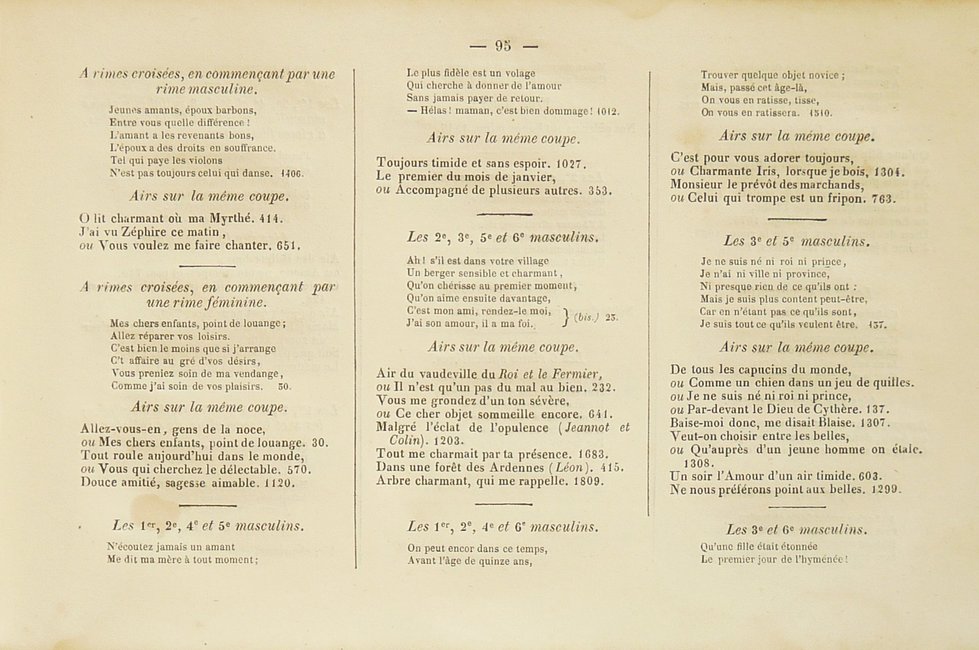 — 95 —
A rimes croisées, en commençant par une
rime masculine.
Jeunes amants, époux barbons,
Entre vous quelle différence !
L'amant a les revenants bons,
L'époux a des droits en souffrance.
Tel qui paye les violons
N'est pas toujours celui qui danse. 1406.
Airs sur la même coupe.
O lit charmant où ma Myrthé. 414.
J'ai vu Zéphire ce matin,
ou Vous voulez me faire chanter. 651.
A rimes croisées, en commençant par
une rime féminine.
Mes chers enfants, point de louange ;
Allez réparer vos loisirs.
C'est bien le moins que si j'arrange
C't affaire au gré d'vos désirs,
Vous preniez soin de ma vendange,
Comme j'ai soin de vos plaisirs. 30.
Airs sur la même coupe.
Allez-vous-en, gens de la noce,
ou Mes chers enfants, point de louange. 30.
Tout roule aujourd'hui dans le monde,
ou Vous qui cherchez le délectable. 570.
Douce amitié, sagesse aimable. 1120.
Les 1er, 2e, 4e et 5e masculins.
N'écoutez jamais un amant
Me dit ma mère à tout moment ;
Le plus fidèle est un volage
Qui cherche à donner de l'amour
Sans jamais payer de retour.
— Hélas ! maman, c'est bien dommage ! 1012.
Airs sur la même coupe.
Toujours timide et sans espoir. 1027.
Le premier du mois de janvier,
ou Accompagné de plusieurs autres. 353.
Les 2e, 3e, 5e et 6e masculins.
Ah ! s'il est dans votre village
Un berger sensible et charmant,
Qu'on chérisse au premier moment,
Qu'on aime ensuite davantage,
C'est mon ami, rendez-le moi,
J'ai son amour, il a ma foi. } (bis.) 25.
Airs sur la même coupe.
Air du vaudeville du Roi et le Fermier,
ou Il n'est qu'un pas du mal au bien. 232.
Vous me grondez d'un ton sévère,
ou Ce cher objet sommeille encore. 641.
Malgré l'éclat de l'opulence (Jeannot et
Colin). 1203.
Tout me charmait par ta présence. 1683.
Dans une forêt des Ardennes (Léon). 415.
Arbre charmant, qui me rappelle. 1809.
Les 1er, 2e, 4e et 6e masculins.
On peut encor dans ce temps,
Avant l'âge de quinze ans,
Trouver quelque objet novice ;
Mais, passé cet âge-là,
On vous en ratisse, tisse,
On vous en ratissera. 1310.
Airs sur la même coupe.
C'est pour vous adorer toujours,
ou Charmante Iris, lorsque je bois, 1304.
Monsieur le prévôt des marchands,
ou Celui qui trompe est un fripon. 763.
Les 3e et 5e masculins.
Je ne suis né ni roi ni prince,
Je n'ai ni ville ni province,
Ni presque rien de ce qu'ils ont :
Mais je suis plus content peut-être,
Car en n'étant pas ce qu'ils sont,
Je suis tout ce qu'ils veulent être. 137.
Airs sur la même coupe.
De tous les capucins du monde,
ou Comme un chien dans un jeu de quilles.
ou Je ne suis né ni roi ni prince,
ou Par-devant le Dieu de Cythère. 137.
Baise-moi donc, me disait Blaise. 1307.
Veut-on choisir entre les belles,
ou Qu'auprès d'un jeune homme on étale.
1308.
Un soir l'Amour d'un air timide. 603.
Ne nous préférons point aux belles. 1299.
Les 3e et 6e masculins.
Qu'une fille était étonnée
Le premier jour de l'hyménée !